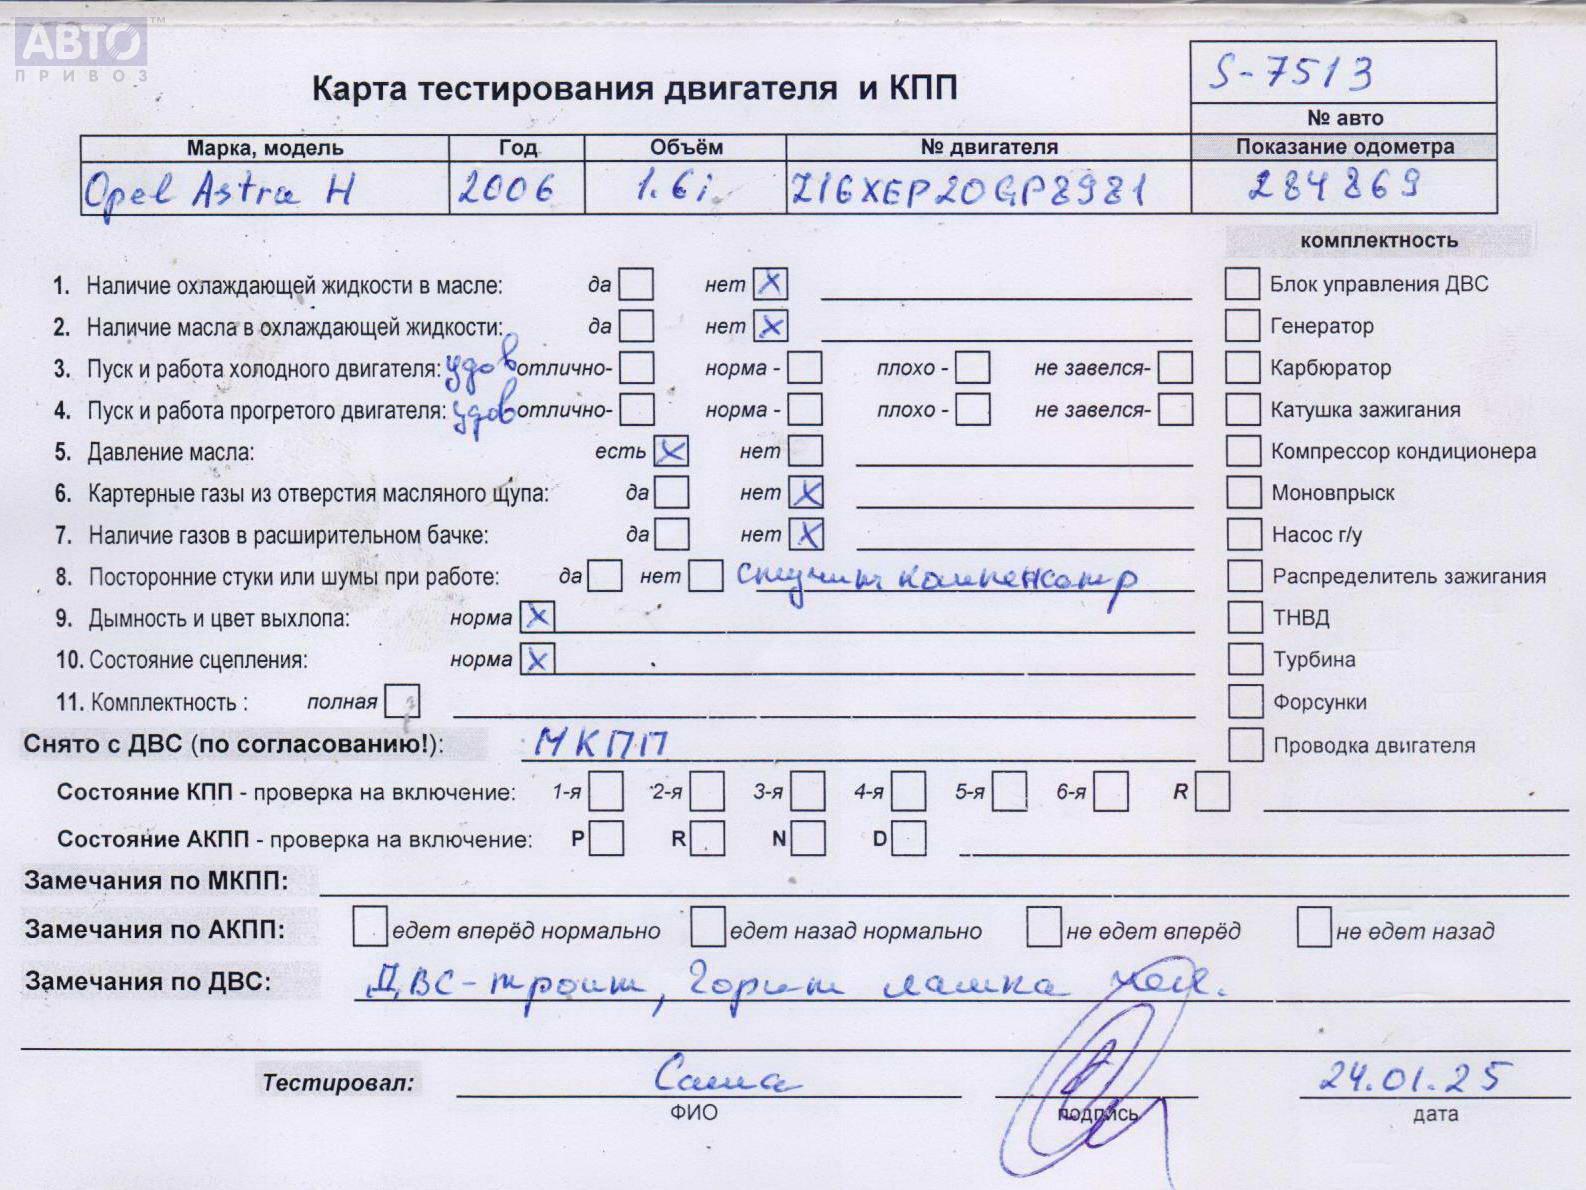 АВТО™
ПРИВОЗ
Карта тестирования двигателя и КПП
S-7513
№ авто
Марка, модель Год Объём № двигателя Показание одометра
Opel Astra H 2006 1.6i Z16XEP20GP8981 284869
комплектность
1. Наличие охлаждающей жидкости в масле: да нет X Блок управления ДВС
2. Наличие масла в охлаждающей жидкости: да нет X Генератор
3. Пуск и работа холодного двигателя: удов отлично- норма - плохо - не завелся- Карбюратор
4. Пуск и работа прогретого двигателя: удов отлично- норма - плохо - не завелся- Катушка зажигания
5. Давление масла: есть X нет Компрессор кондиционера
6. Картерные газы из отверстия масляного щупа: да нет X Моновпрыск
7. Наличие газов в расширительном бачке: да нет X Насос г/у
8. Посторонние стуки или шумы при работе: да нет стучит компенсатр Распределитель зажигания
9. Дымность и цвет выхлопа: норма X ТНВД
10. Состояние сцепления: норма X Турбина
11. Комплектность : полная Форсунки
Снято с ДВС (по согласованию!): МКПП Проводка двигателя
Состояние КПП - проверка на включение: 1-я 2-я 3-я 4-я 5-я 6-я R
Состояние АКПП - проверка на включение: P R N D
Замечания по МКПП:
Замечания по АКПП: едет вперёд нормально едет назад нормально не едет вперёд не едет назад
Замечания по ДВС: ДВС-троит, горит лампа
Тестировал: Саша 24.01.25
ФИО подпись дата